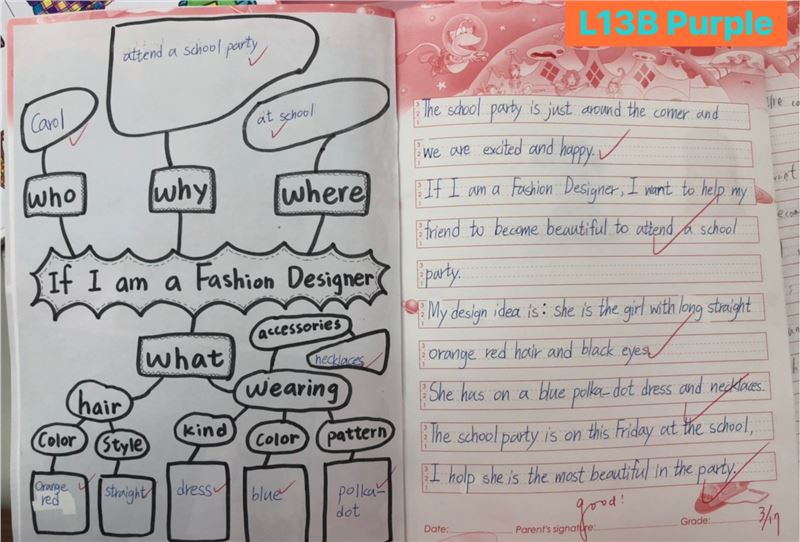 L13B Purple
attend a school party
Carol
at school
who
why
where
If I am a Fashion Designer
what
accessories
necklaces
wearing
hair
Color
Style
kind
Color
pattern
Orange
red
straight
dress
blue
polka-
dot
The school party is just around the corner and
we are excited and happy.
If I am a Fashion Designer, I want to help my
friend to become beautiful to attend a school
party.
My design idea is: she is the girl with long straight
orange red hair and black eyes.
She has on a blue polka-dot dress and necklaces.
The school party is on this Friday at the school,
I holp she is the most beautiful in the party.
good!
Date: Parent's signature: Grade:
3/17